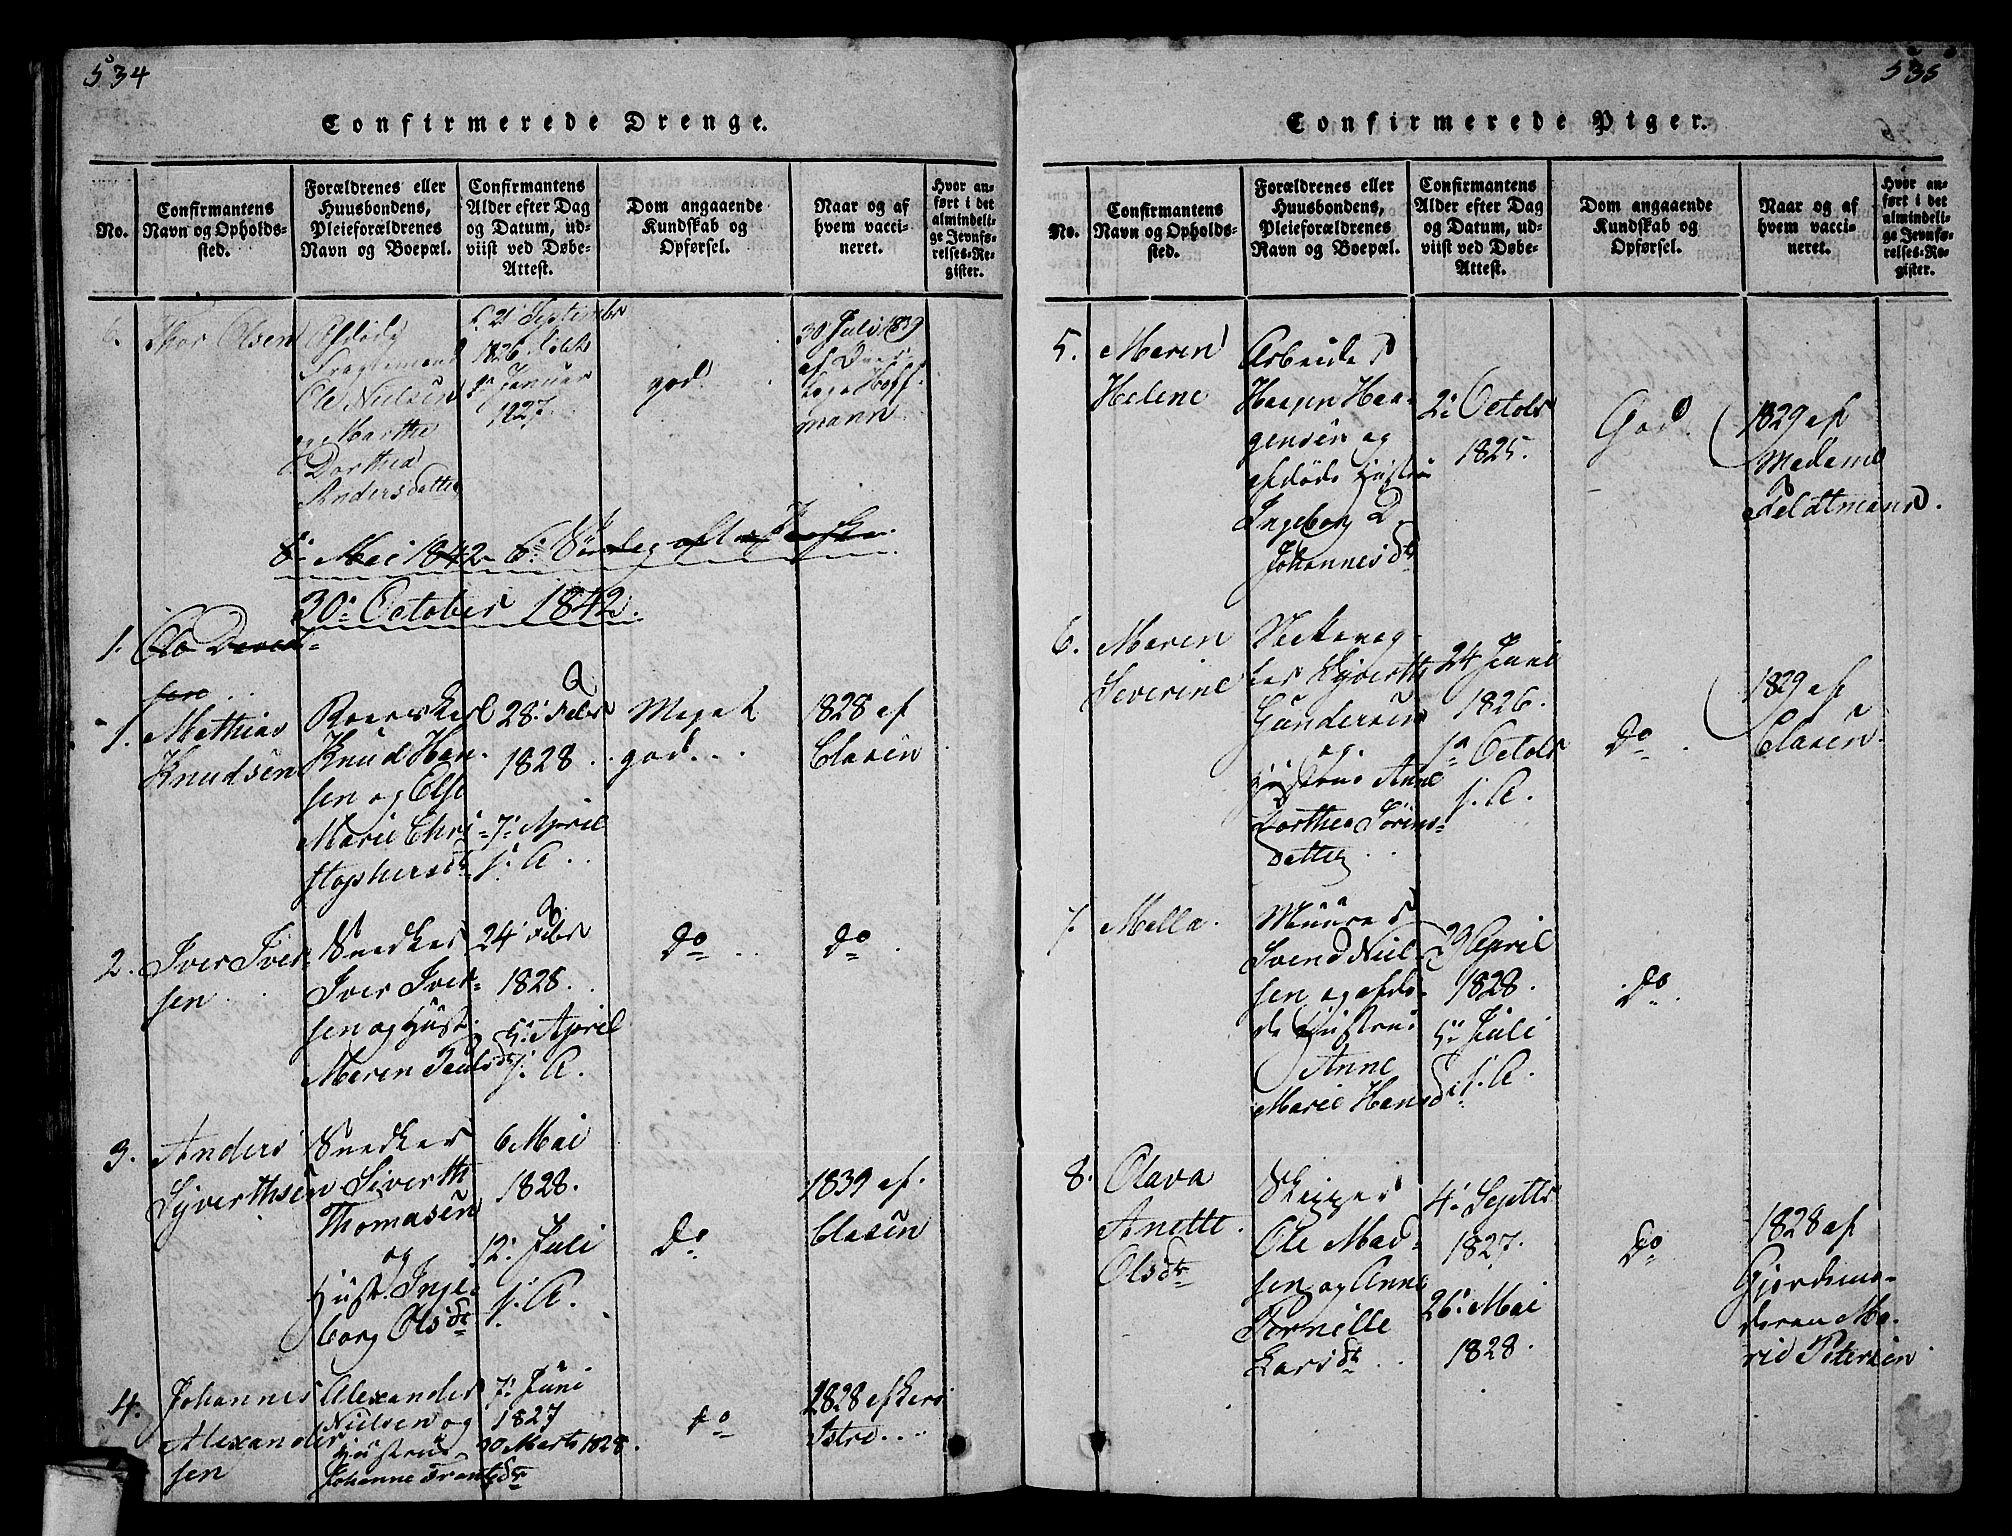 534
Confirmerede Drenge.
No.
Confirmantens
Navn og Opholds-
sted.
Forældrenes eller
Huusbondens,
Pleieforældrenes
Navn og Boepæl.
Confirmantens
Alder efter Dag
og Datum, ud-
viist ved Døbe-
Attest.
Dom angaaende
Kundskab og
Opførsel.
Naar og af
hvem vacci-
neret.
Hvor an-
ført i det
almindeli-
ge Jevnfø-
relses-Re-
gister.
6.
Thor Olsen
Afdøde
Ole Nielsen
og Marthe
Dorthea
Andersdatter
21 Septembr
1826
Januar
1827.
god.
30 Juli 1839
af
Hoff-
mann.
8de Mai 1842 6te Søndag efter Paaske
30te October 1842.
1.
Ole
sen
1.
Mathias
Knudsen
Knud Han-
sen og Else
Marie Chri-
stophersdtr
28. Febr
1828
7de April
s. A.
Meget
god.
1828 af
Clasen
2.
Iver Iver-
sen
Snedker
Iver Iver-
sen og Hust.
Maren Paulsdtr
24 Febr
1828.
5te April
s. A.
Do
Do
3.
Anders
Syverthsen
Snedker
Siverth
Thomasen
og
Hust. Inge-
borg Olsdtr
6 Mai
1828.
12te Juli
s. A.
Do
1839 af
Clasen
4.
Johannes
Alexander
sen
Alexander
Nielsen og
Hustrue
Johanne Frantsdtr
7de Juni
1827
30 Marts 1828.
do
1828 af
Istre
535
Confirmerede Piger.
No.
Confirmantens
Navn og Opholds-
sted.
Forældrenes eller
Huusbondens,
Pleieforældrenes
Navn og Boepæl.
Confirmantens
Alder efter Dag
og Datum, ud-
viist ved Døbe-
Attest.
Dom angaaende
Kundskab og
Opførsel.
Naar og af
hvem vacci-
neret.
Hvor an-
ført i det
almindeli-
ge Jevnfø-
relses-Re-
gister.
5.
Maren
Helene
Arbeider
Haagen Haa-
gensen og
afdøde Hustru
Ingeborg
Johannesdtr
2de Octobr
1825.
God.
1829 af
Madame
Feldtmann.
6.
Maren
Severine
Syverth
Gundersen
og
Hustrue Anne
Dorthea Sørens-
datter
24 Juni
1826.
1ste Octobr
s. A.
Do
1829 af
Clasen.
7.
Mella.
Muurer
Svend Niel-
sen og afdø-
de Hustrue
Anne
Marie Hansdtr
29 April
1828.
5te Juli
s. A.
Do
8.
Olava
Anette
Olsdtr
Skipper
Ole Mad-
sen og Anne
Pernille
Larsdtr
4de Septbr
1827.
26te Mai
1828.
Do
1828 af
Gjordemo-
deren Ma-
rie Petersen